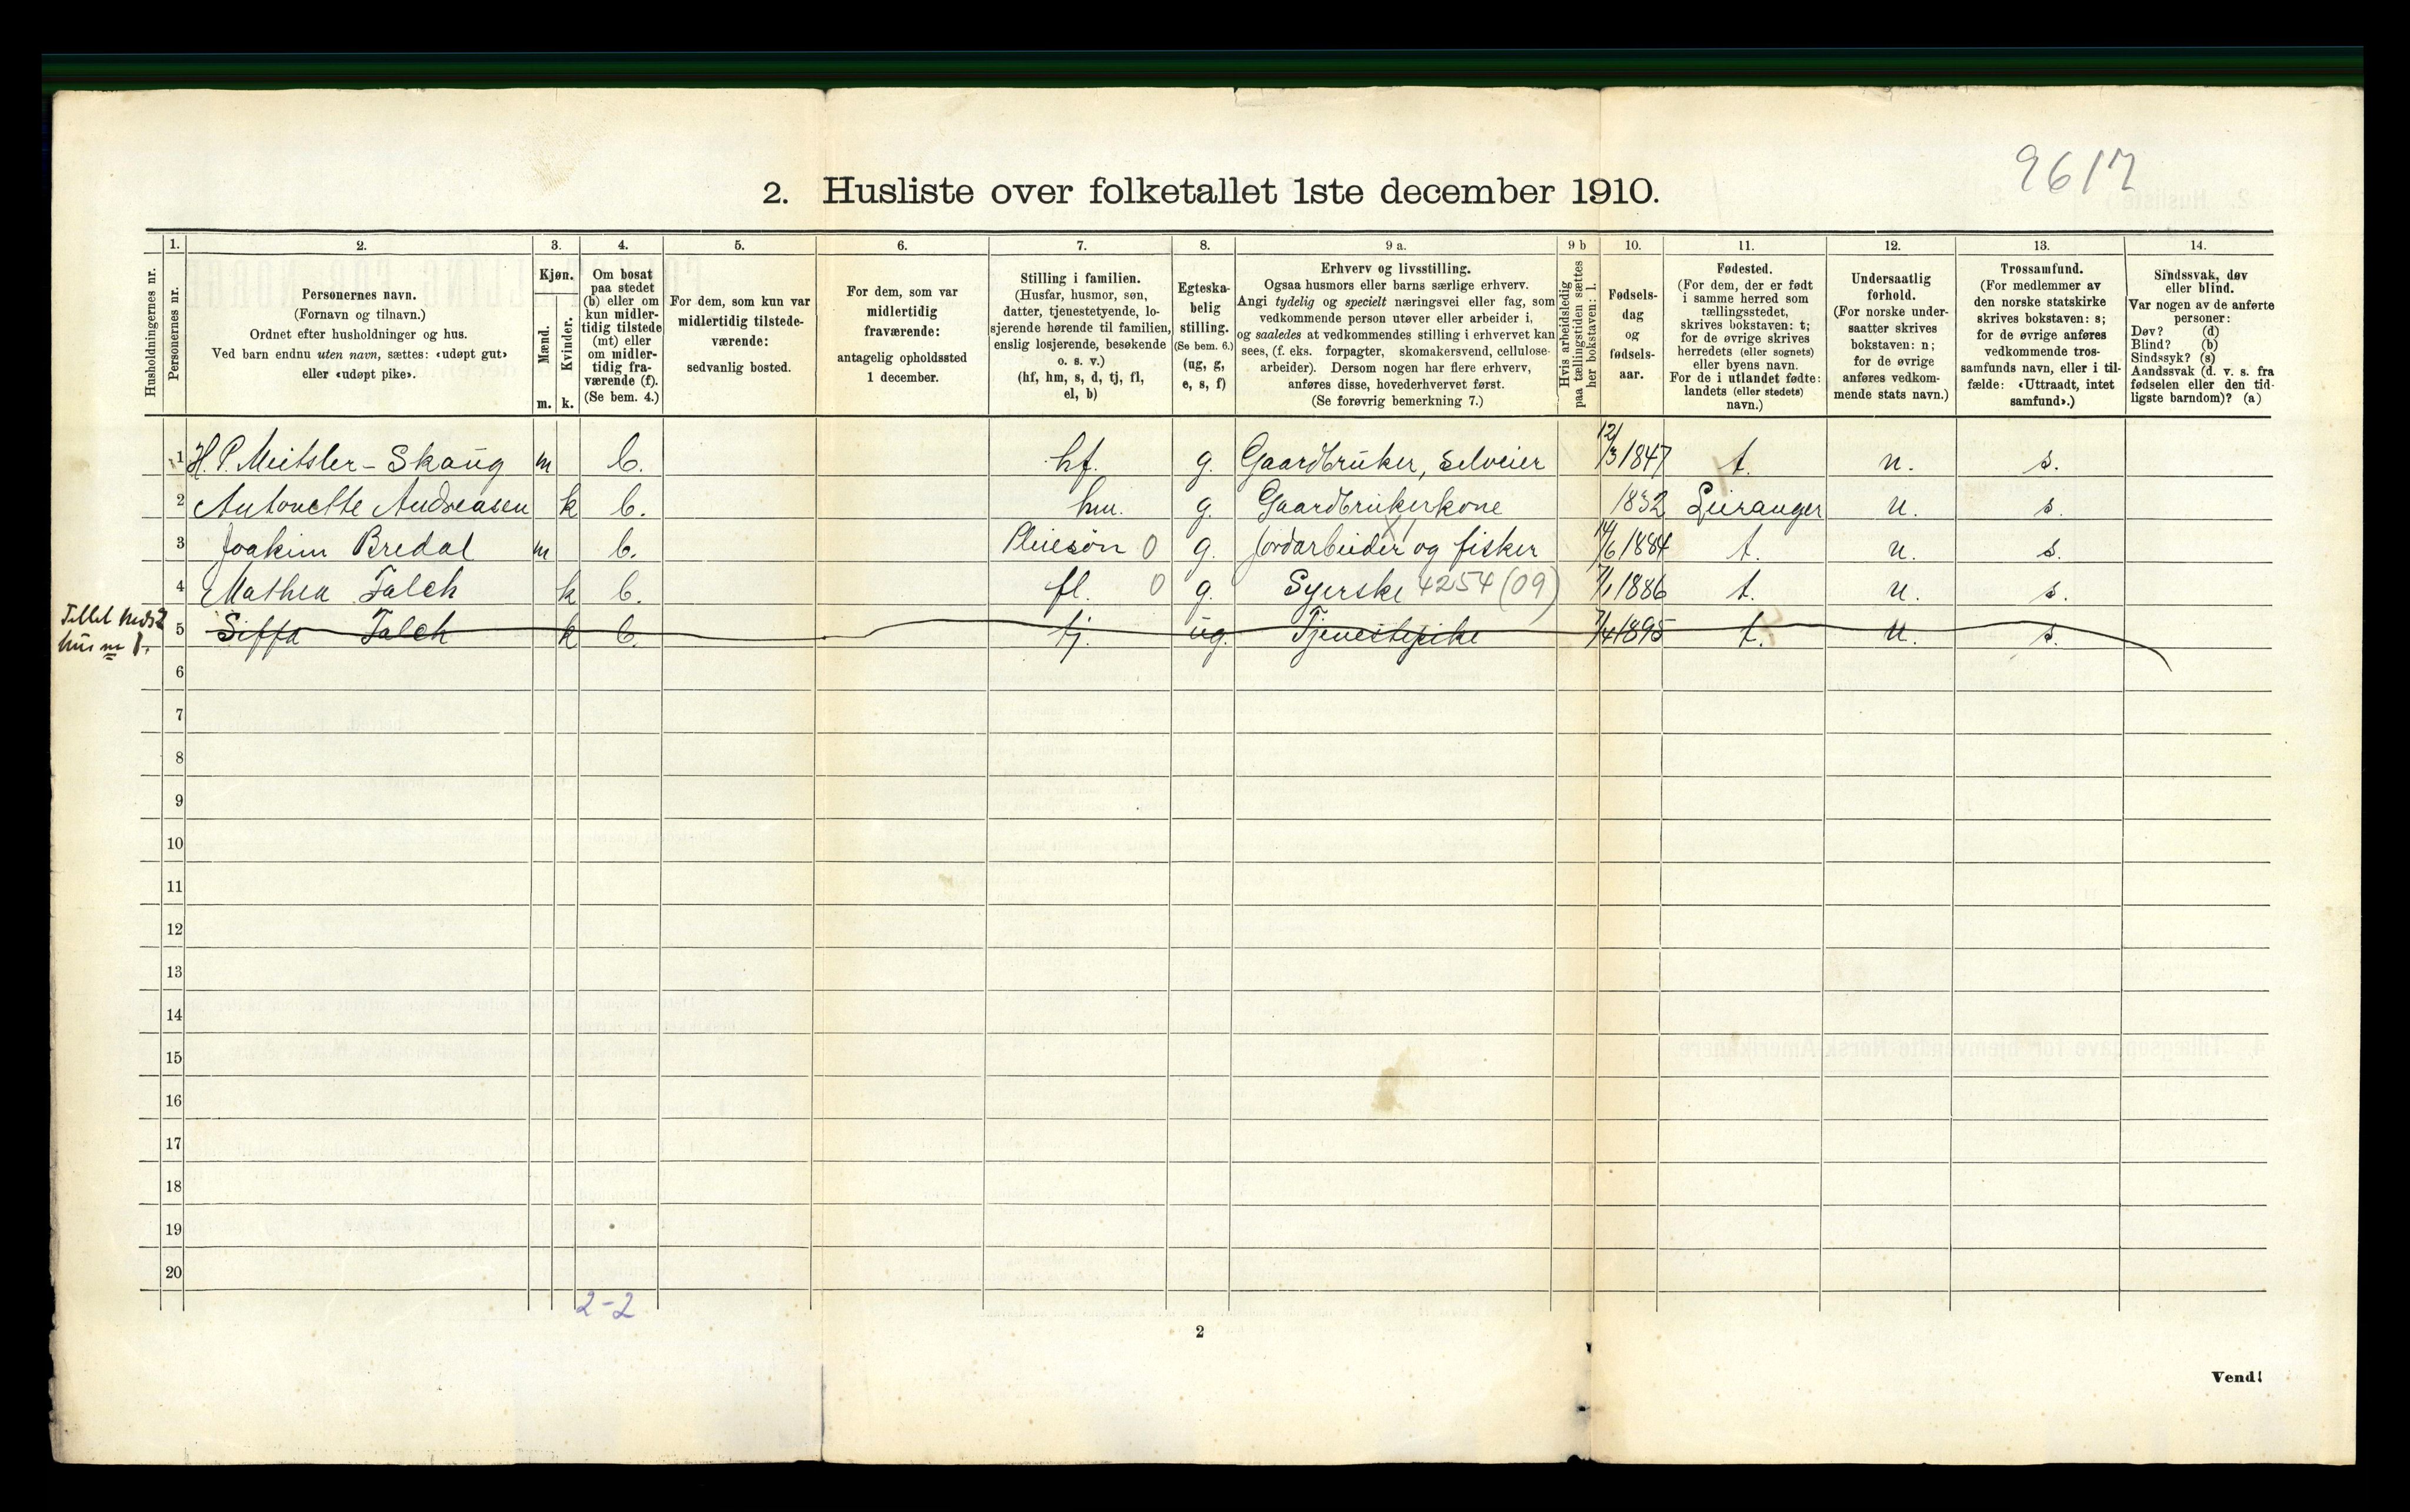 9617
2. Husliste over folketallet 1ste december 1910.
Husholdningernes nr.
1.
Personernes nr.
2.
Personernes navn.
(Fornavn og tilnavn.)
Ordnet efter husholdninger og hus.
Ved barn endnu uten navn, sættes: «udøpt gut»
eller «udøpt pike».
3.
Kjøn.
Mænd.
Kvinder.
m. k.
4.
Om bosat
paa stedet
(b) eller om
kun midler-
tidig tilstede
(mt) eller
om midler-
tidig fra-
værende (f).
(Se bem. 4.)
5.
For dem, som kun var
midlertidig tilstede-
værende:
sedvanlig bosted.
6.
For dem, som var
midlertidig
fraværende:
antagelig opholdssted
1 december.
7.
Stilling i familien.
(Husfar, husmor, søn,
datter, tjenestetyende, lo-
sjerende hørende til familien,
enslig losjerende, besøkende
o. s. v.)
(hf, hm, s, d, tj, fl,
el, b)
8.
Egteska-
belig
stilling.
(Se bem. 6.)
(ug, g,
e, s, f)
9 a.
Erhverv og livsstilling.
Ogsaa husmors eller barns særlige erhverv.
Angi tydelig og specielt næringsvei eller fag, som
vedkommende person utøver eller arbeider i,
og saaledes at vedkommendes stilling i erhvervet kan
sees, (f. eks. forpagter, skomakersvend, cellulose-
arbeider). Dersom nogen har flere erhverv,
anføres disse, hovederhvervet først.
(Se forøvrig bemerkning 7.)
9 b
Hvis arbeidsledig
paa tællingstiden sættes
her bokstaven: l.
10.
Fødsels-
dag
og
fødsels-
aar.
11.
Fødested.
(For dem, der er født
i samme herred som
tællingsstedet,
skrives bokstaven: t;
for de øvrige skrives
herredets (eller sognets)
eller byens navn.
For de i utlandet fødte:
landets (eller stedets)
navn.)
12.
Undersaatlig
forhold.
(For norske under-
saatter skrives
bokstaven: n;
for de øvrige
anføres vedkom-
mende stats navn.)
13.
Trossamfund.
(For medlemmer av
den norske statskirke
skrives bokstaven: s;
for de øvrige anføres
vedkommende tros-
samfunds navn, eller i til-
fælde: «Uttraadt, intet
samfund».)
14.
Sindssvak, døv
eller blind.
Var nogen av de anførte
personer:
Døv? (d)
Blind? (b)
Sindssyk? (s)
Aandssvak (d. v. s. fra
fødselen eller den tid-
ligste barndom)? (a)
1 H. P. Meitsler - Skaug m b. hf. g. Gaardbruker, selveier 12/3 1847 t. n. s.
2 Antonette Andreasen k b. hm. g. Gaardbrukerkone 1832 Leiranger n. s.
3 Joakim Bredal m b. Pleiesøn 0 g. Jordarbeider og fisker 14/6 1884 t. n. s.
4 Mathea Falch k b. fl. 0 g. Syerske 4254 (09) 7/1 1886 t. n. s.
5 Siffa Falch k b. tj. ug. Tjenestepike 7/4 1895 t. n. s.
hus nr 1.
6
7
8
9
10
11
12
13
14
15
16
17
18
19
20
2-2
2
Vend!